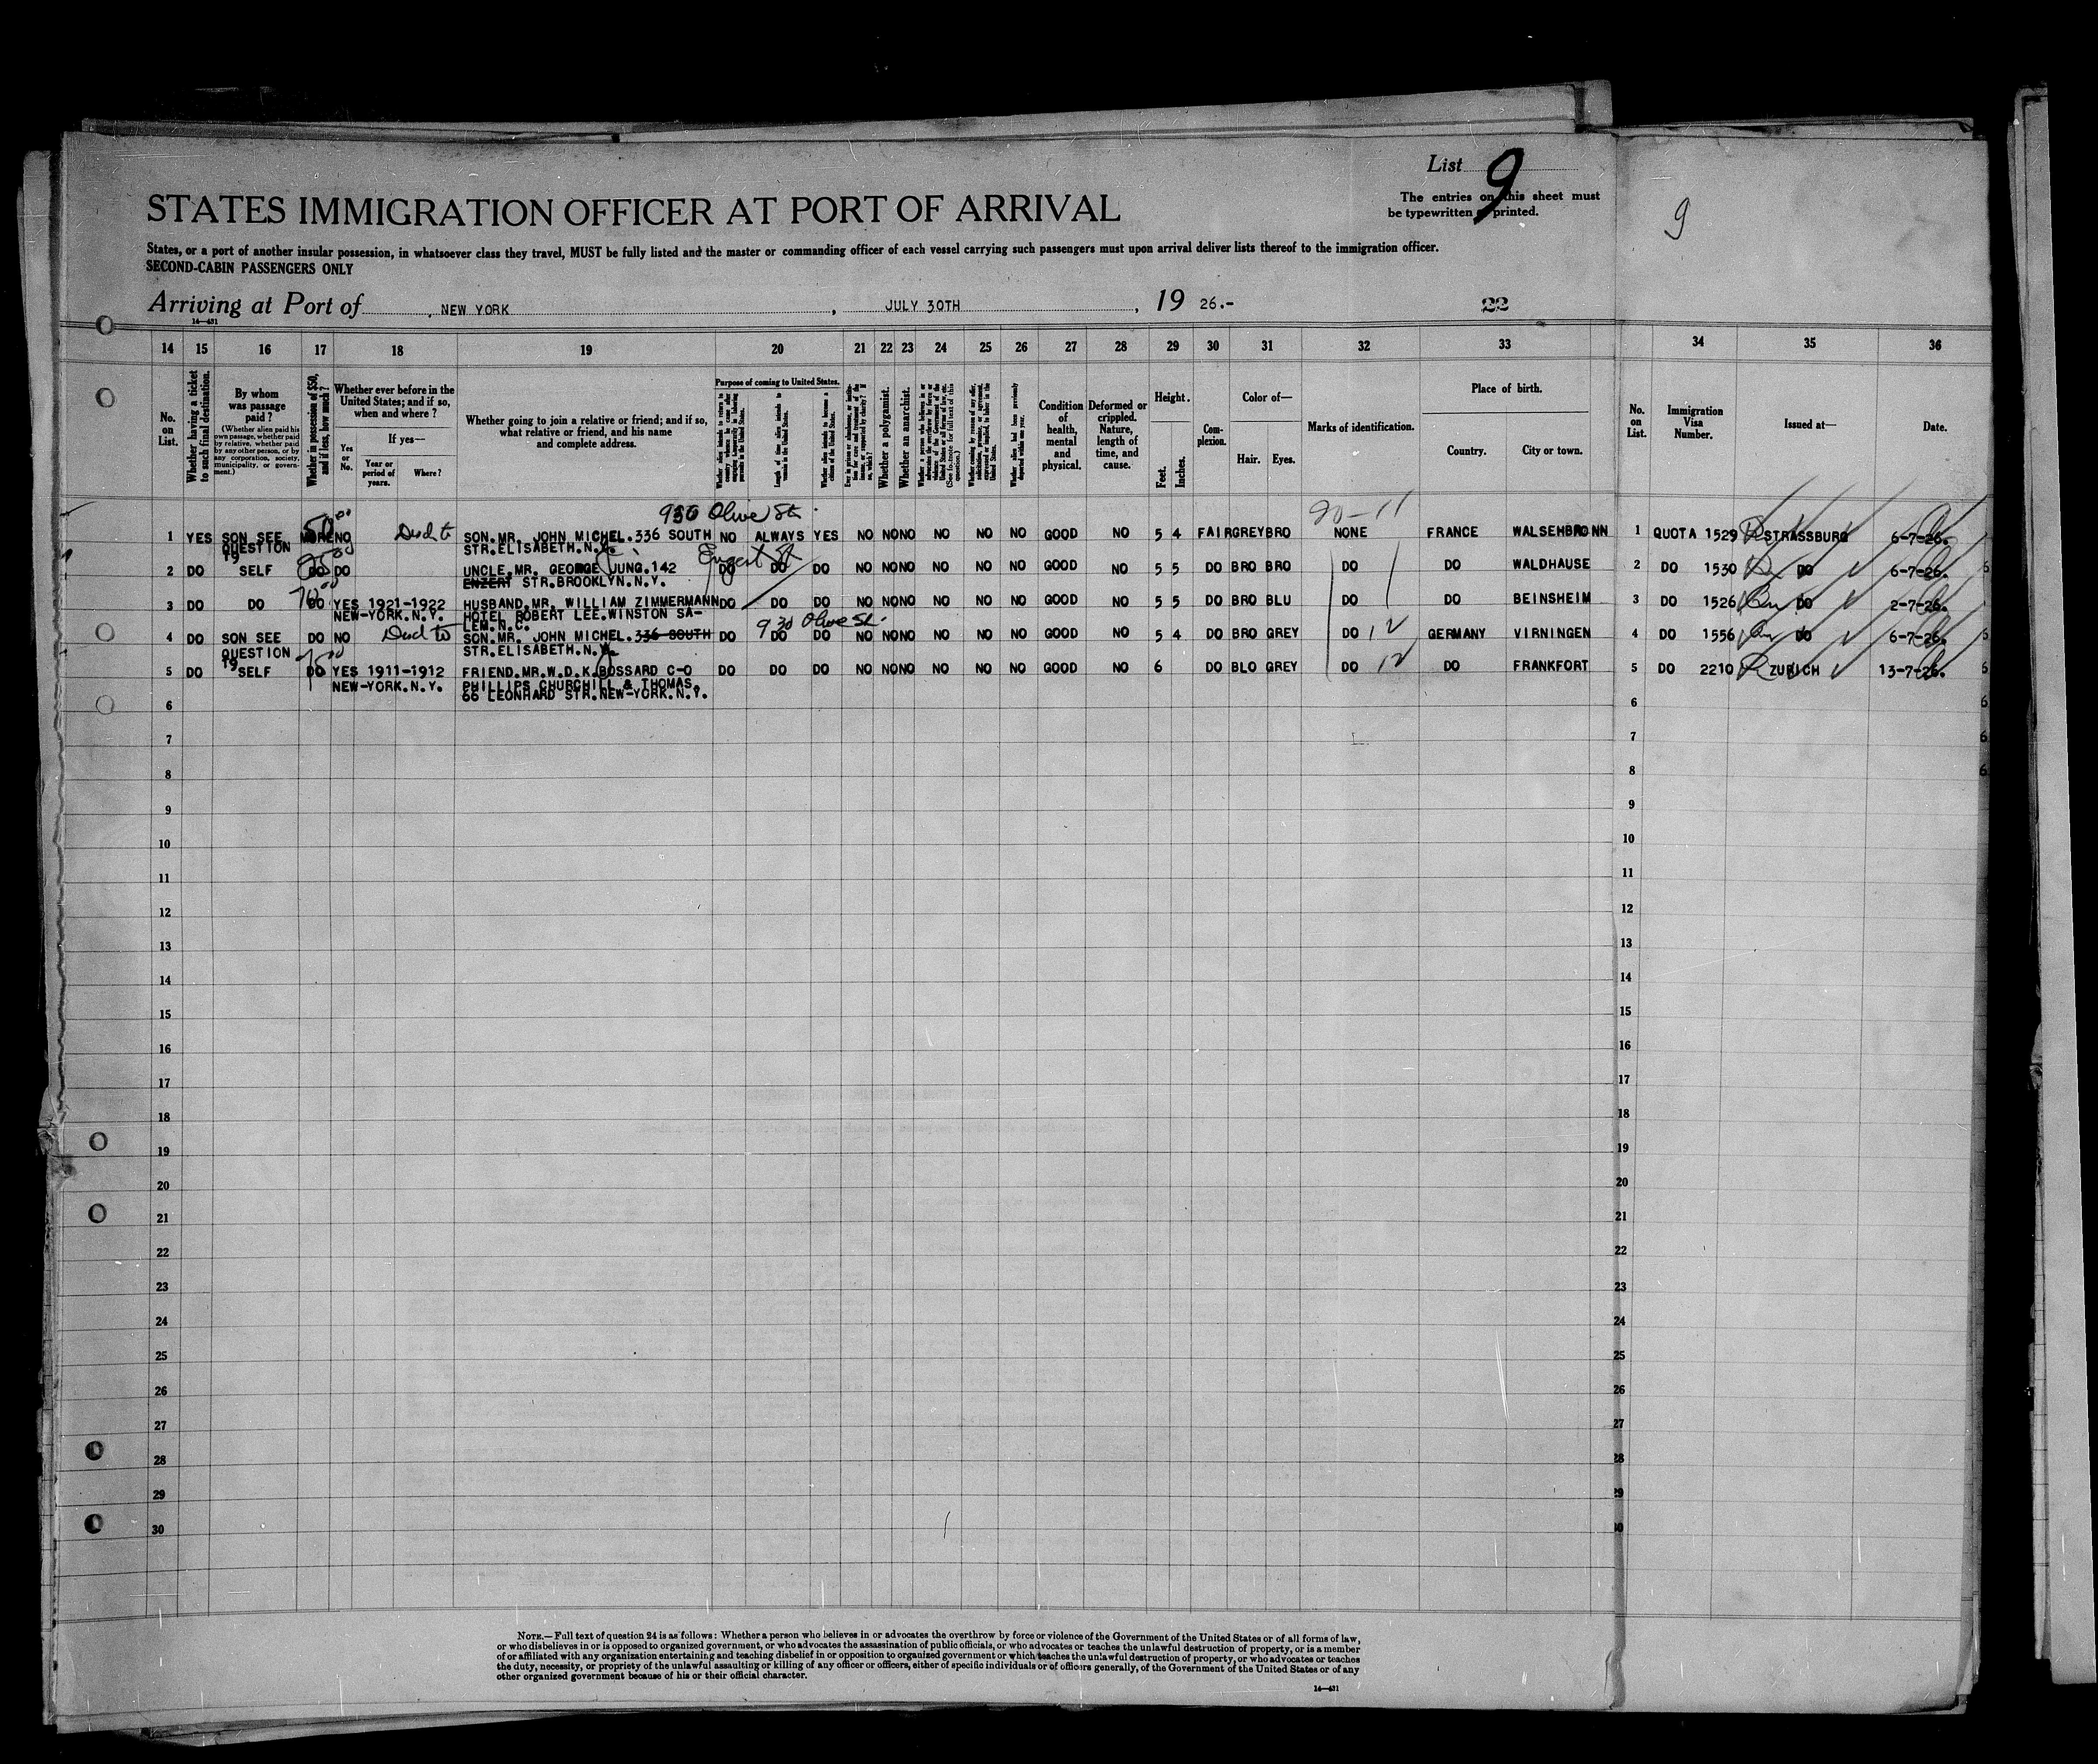 List 9
The entries on this sheet must
be typewritten printed.
9
STATES IMMIGRATION OFFICER AT PORT OF ARRIVAL
States, or a port of another insular possession, in whatsoever class they travel, MUST be fully listed and the master or commanding officer of each vessel carrying such passengers must upon arrival deliver lists thereof to the immigration officer.
SECOND-CABIN PASSENGERS ONLY
Arriving at Port of NEW YORK, JULY 30TH, 19 26.- 22
14—431
14 15 16 17 18 19 20 21 22 23 24 25 26 27 28 29 30 31 32 33 34 35 36
No. on List.
Whether having a ticket to such final destination.
By whom was passage paid?
(Whether alien paid his own passage, whether paid by relative, whether paid by any other person, or by any corporation, society, municipality, or government.)
Whether in possession of $50, and if less, how much?
Whether ever before in the United States; and if so, when and where?
Yes or No.
If yes—
Year or period of years.
Where?
Whether going to join a relative or friend; and if so, what relative or friend, and his name and complete address.
Purpose of coming to United States.
Length of time alien intends to remain in the United States.
Whether alien intends to become a citizen of the United States.
Whether a polygamist.
Whether an anarchist.
Condition of health, mental and physical.
Deformed or crippled. Nature, length of time, and cause.
Height.
Feet. Inches.
Complexion.
Color of—
Hair. Eyes.
Marks of identification.
Place of birth.
Country. City or town.
No. on List.
Immigration Visa Number.
Issued at—
Date.
930 Olive St.
20-11
1 YES SON SEE NO SON.MR. JOHN MICHEL.336 SOUTH NO ALWAYS YES NO NO NO NO NO NO GOOD NO 5 4 FAIR GREY BRO NONE FRANCE WALSEHBRONN 1 QUOTA 1529 STRASSBURG 6-7-26.
QUESTION STR.ELISABETH.N.
19
2 DO SELF DO DO UNCLE.MR. GEORGE JUNG.142 DO DO DO NO NO NO NO NO NO GOOD NO 5 5 DO BRO BRO DO DO WALDHAUSE 2 DO 1530 DO 6-7-26.
ENZERT STR.BROOKLYN.N.Y.
3 DO DO DO YES 1921-1922 HUSBAND.MR. WILLIAM ZIMMERMANN DO DO DO NO NO NO NO NO NO GOOD NO 5 5 DO BRO BLU DO DO BEINSHEIM 3 DO 1526 DO 2-7-26.
NEW-YORK.N.Y. HOTEL ROBERT LEE.WINSTON SA-
LEM.N.C. 930 Olive St.
4 DO SON SEE DO NO SON.MR. JOHN MICHEL.336 SOUTH DO DO DO NO NO NO NO NO NO GOOD NO 5 4 DO BRO GREY DO 12 GERMANY VIRNINGEN 4 DO 1556 DO 6-7-26.
QUESTION STR.ELISABETH.N.
19
5 DO SELF DO YES 1911-1912 FRIEND.MR.W.D.K.BOSSARD C-O DO DO DO NO NO NO NO NO NO GOOD NO 6 DO BLO GREY DO 12 DO FRANKFORT 5 DO 2210 ZURICH 13-7-26.
NEW-YORK.N.Y. PHILLIPS CHURCHILL & THOMAS.
66 LEONHARD STR.NEW-YORK.N.Y.
6 6
7 7
8 8
9 9
10 10
11 11
12 12
13 13
14 14
15 15
16 16
17 17
18 18
19 19
20 20
21 21
22 22
23 23
24 24
25 25
26 26
27 27
28 28
29 29
30 30
NOTE.—Full text of question 24 is as follows: Whether a person who believes in or advocates the overthrow by force or violence of the Government of the United States or of all forms of law,
or who disbelieves in or is opposed to organized government, or who advocates the assassination of public officials, or who advocates or teaches the unlawful destruction of property, or is a member
of or affiliated with any organization entertaining and teaching disbelief in or opposition to organized government or which teaches the unlawful destruction of property, or who advocates or teaches
the duty, necessity, or propriety of the unlawful assaulting or killing of any officer or officers, either of specific individuals or of officers generally, of the Government of the United States or of any
other organized government because of his or their official character.
14—431